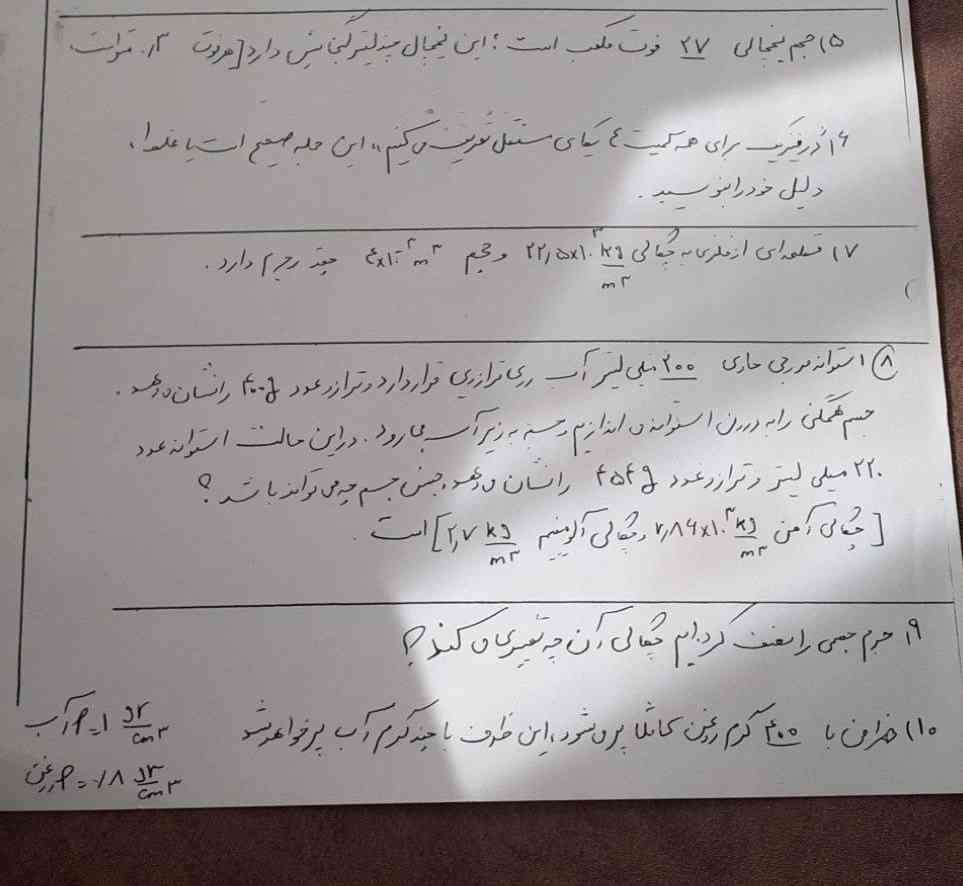 ۵) حجم یخچالی ۲۷ فوت مکعب است؛ این یخچال چند لیتر گنجایش دارد [هر فوت ۰٫۳ متر است.
۶) «در فیزیک برای همه کمیت ها یکای مستقل تعریف می کنیم» این جمله صحیح است یا غلط؛
دلیل خود را بنویسید.
۷) قطعه ای از فلزی به چگالی ۲۲٫۵×۱۰^۳ kg/m^۳ و حجم ۴×۱۰^-۲ m^۳ چقدر جرم دارد.
۸) استوانه مدرجی حاوی ۲۰۰ میلی لیتر آب روی ترازویی قرار دارد و ترازو عدد ۴۰۰g را نشان می دهد.
جسم همگنی را به درون استوانه می اندازیم و جسم به زیر آب می رود. در این حالت استوانه عدد
۲۲۰ میلی لیتر و ترازو عدد ۴۵۴g را نشان می دهد، جنس جسم چه می تواند باشد؟
[چگالی آهن ۷٫۸۶×۱۰^۳ kg/m^۳ و چگالی آلومینیم ۲٫۷ kg/m^۳] است.
۹) جرم جسمی را نصف کرده ایم چگالی آن چه تغییری می کند؟
۱۰) ظرفی با ۴۰۰ گرم روغن کاملا پر می شود، این ظرف با چند گرم آب پر خواهد شد
ρ آب = ۱ gr/cm^۳
ρ روغن = ۰٫۸ gr/cm^۳